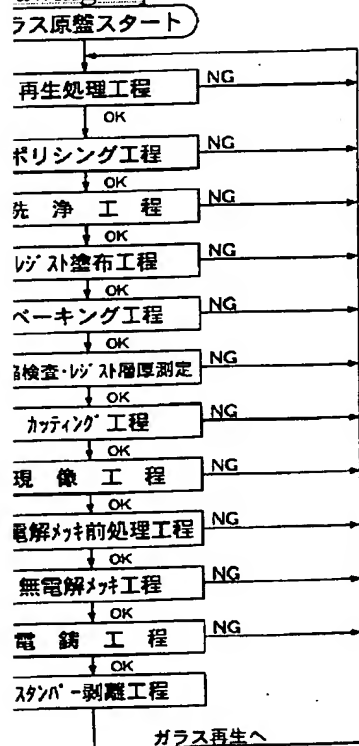 ラス原盤スタート
再生処理工程
NG
OK
ポリシング工程
NG
OK
洗浄工程
NG
OK
レジスト塗布工程
NG
OK
ベーキング工程
NG
OK
検査・レジスト層厚測定
NG
OK
カッティング工程
NG
OK
現像工程
NG
OK
電解メッキ前処理工程
NG
OK
無電解メッキ工程
NG
OK
電鋳工程
NG
OK
スタンパー剥離工程
ガラス再生へ